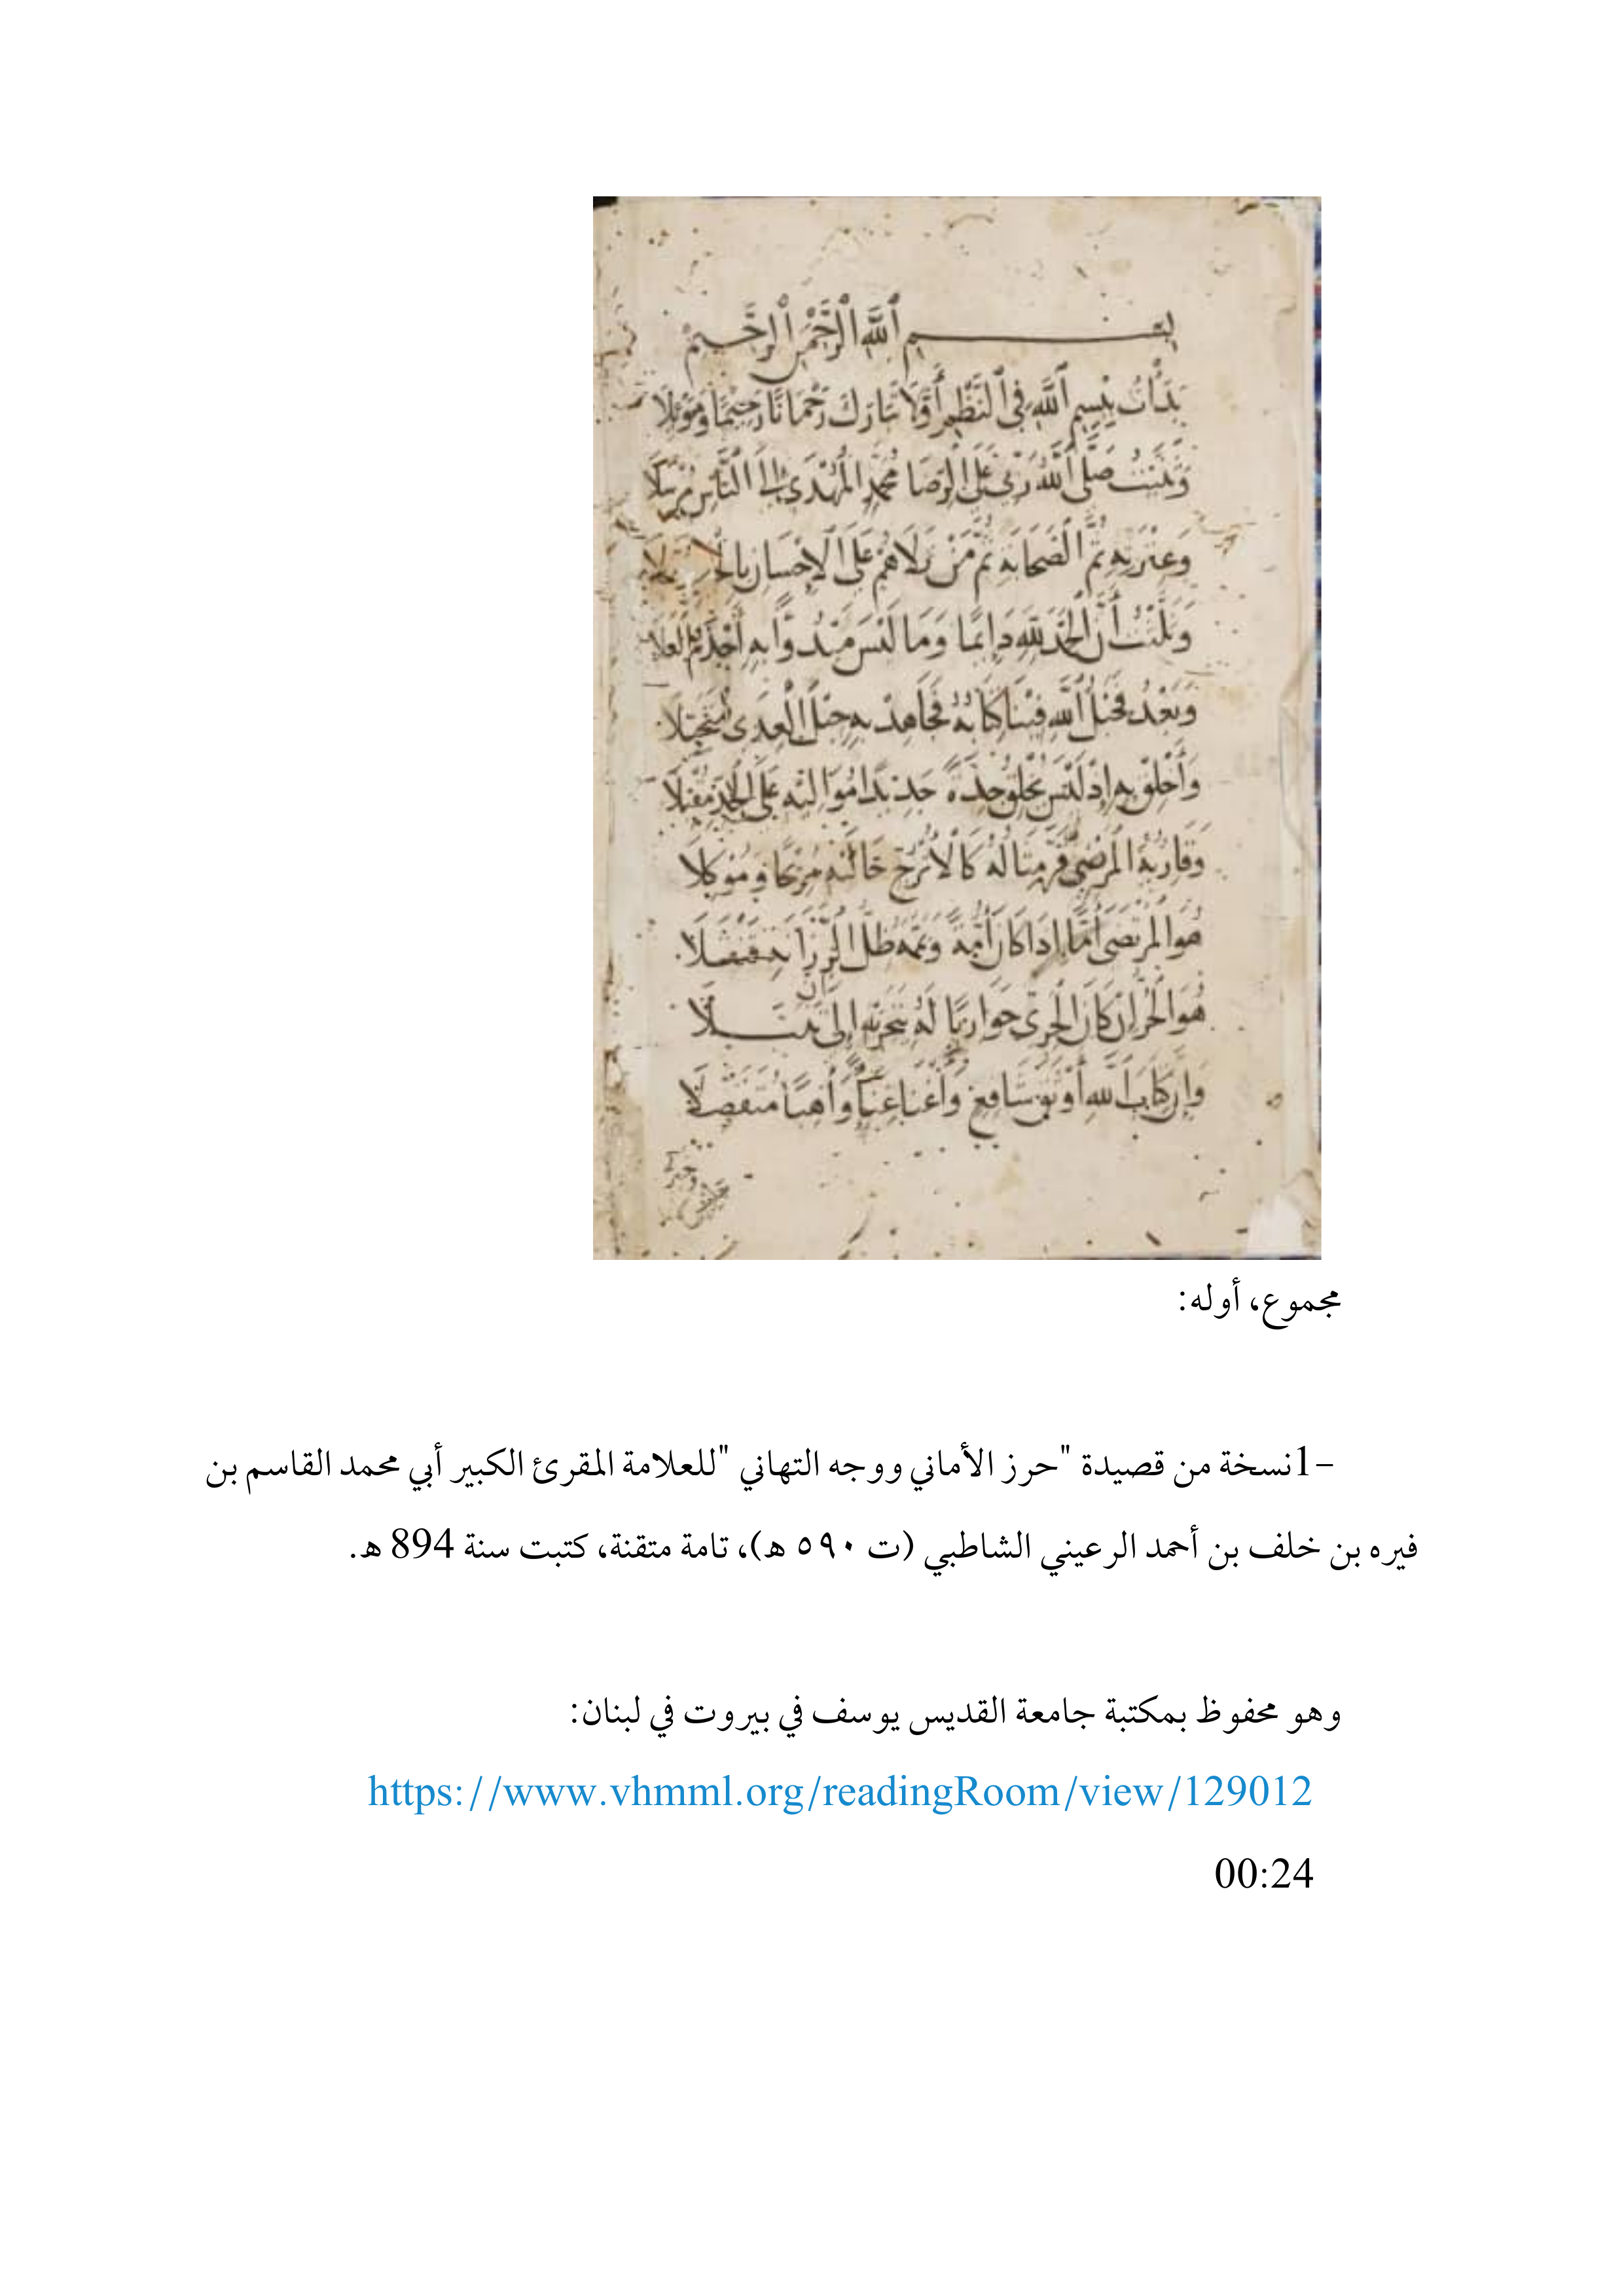 بِسْمِ ٱللَّهِ ٱلرَّحْمَٰنِ ٱلرَّحِيمِ
بَدَأْتُ بِبِسْمِ ٱللَّهِ فِي ٱلنَّظْمِ أَوَّلَا تَبَارَكَ رَحْمَانًا رَحِيمًا وَمَوْئِلَا
وَثَنَّيْتُ صَلَّى ٱللَّهُ رَبِّي عَلَى ٱلرِّضَا مُحَمَّدٍ ٱلْمُهْدَى إِلَى ٱلنَّاسِ مُرْسَلَا
وَعِتْرَتِهِ ثُمَّ ٱلصَّحَابَةِ ثُمَّ مَنْ تَلَاهُمْ عَلَى ٱلْإِحْسَانِ
وَثَلَّثْتُ أَنَّ ٱلْحَمْدَ لِلَّهِ دَائِمًا وَمَا لَيْسَ مَبْدُوًّا بِهِ أَجْذَمُ ٱلْعَلَا
وَبَعْدُ فَحَبْلُ ٱللَّهِ فِينَا كِتَابُهُ فَجَاهِدْ بِهِ حِبْلَ ٱلْعِدَى مُتَحَبِّلَا
وَأَخْلِقْ بِهِ إِذْ لَيْسَ يَخْلُقُ جِدَّةً جَدِيدًا مُوَالِيهِ عَلَى ٱلْجِدِّ مُقْبِلَا
وَقَارِئُهُ ٱلْمَرْضِيُّ قَرَّ مِثَالُهُ كَٱلْأُتْرُجِّ حَالَيْهِ مُرِيحًا وَمُوكِلَا
هُوَ ٱلْمُرْتَضَى أَمًّا إِذَا كَانَ أُمَّةً وَيَمَّمَهُ ظِلُّ ٱلرَّزَانَةِ قَنْقَلَا
هُوَ ٱلْحُرُّ إِنْ كَانَ ٱلْحَرِيَّ حَوَارِيًّا لَهُ بِتَحَرِّيهِ إِلَى أَنْ تَنَبَّلَا
وَإِنَّ كِتَابَ ٱللَّهِ أَوْثَقُ شَافِعٍ وَأَغْنَى غَنَاءً وَاهِبًا مُتَفَضِّلَا
مجموع، أوله:
-1نسخة من قصيدة "حرز الأماني ووجه التهاني "للعلامة المقرئ الكبير أبي محمد القاسم بن
فيره بن خلف بن أحمد الرعيني الشاطبي (ت ٥٩٠ هـ)، تامة متقنة، كتبت سنة 894 هـ.
وهو محفوظ بمكتبة جامعة القديس يوسف في بيروت في لبنان:
https://www.vhmml.org/readingRoom/view/129012
00:24